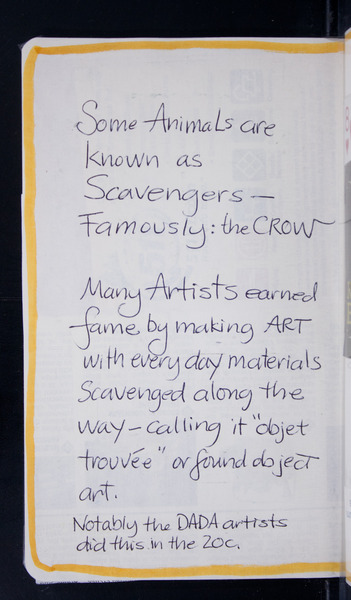 Some Animals are
known as
Scavengers —
Famously: the CROW
Many Artists earned
fame by making ART
with everyday materials
Scavenged along the
way - calling it "objet
trouvée" or found object
art.
Notably the DADA artists
did this in the 20C.